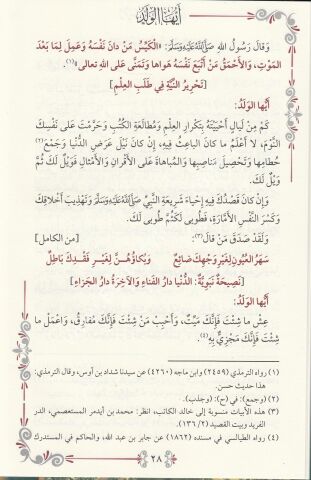 أيها الولد
وَقالَ رَسُولُ اللهِ ﷺ: «الْكَيِّسُ مَنْ دانَ نَفْسَهُ وَعَمِلَ لِمَا بَعْدَ
المَوْتِ، وَالأَحْمَقُ مَنْ أَتْبَعَ نَفْسَهُ هَواها وَتَمَنَّى عَلَى اللهِ تعالى»(١).
[تَحْرِيرُ النِّيَّةِ فِي طَلَبِ العِلْمِ]
أَيُّها الوَلَدُ:
كَمْ مِنْ لَيالٍ أَحْيَيْتَهُ بِتَكْرارِ العِلْمِ وَمُطالَعَةِ الكُتُبِ وَحَرَّمْتَ عَلى نَفْسِكَ
النَّوْمَ، لا أَعْلَمُ ما كانَ الباعِثُ فِيهِ، إِنْ كانَ نَيْلَ عَرَضِ الدُّنْيا وَجَمْعَ(٢)
حُطامِها وَتَحْصِيلَ مَناصِبِها وَالمُباهاةَ عَلى الأَقْرانِ وَالأَمْثالِ فَوَيْلٌ لَكَ ثُمَّ
وَيْلٌ لَكَ.
وَإِنْ كانَ قَصْدُكَ فِيهِ إِحْياءَ شَرِيعَةِ النَّبِيِّ ﷺ وَتَهْذِيبَ أَخْلاقِكَ
وَكَسْرَ النَّفْسِ الأَمَّارَةِ، فَطُوبى لَكَ ثُمَّ طُوبى لَكَ.
وَلَقَدْ صَدَقَ مَنْ قالَ(٣): [من الكامل]
سَهَرُ العُيُونِ لِغَيْرِ وَجْهِكَ ضائِعٌ وَبُكاؤُهُنَّ لِغَيْرِ فَقْدِكَ باطِلُ
[نَصِيحَةٌ نَبَوِيَّةٌ: الدُّنْيا دارُ الفَناءِ وَالآخِرَةُ دارُ الجَزاءِ]
أَيُّها الوَلَدُ:
عِشْ ما شِئْتَ فَإِنَّكَ مَيِّتٌ، وَأَحْبِبْ مَنْ شِئْتَ فَإِنَّكَ مُفارِقُهُ، وَاعْمَلْ ما
شِئْتَ فَإِنَّكَ مَجْزِيٌّ بِهِ(٤).
(١) رواه الترمذي (٢٤٥٩) وابن ماجه (٤٢٦٠) عن سيدنا شداد بن أوس، وقال الترمذي:
هذا حديث حسن.
(٢) (وجمع): في (ح): (وجذب).
(٣) هذه الأبيات منسوبة إلى خالد الكاتب، انظر: محمد بن أيدمر المستعصمي، الدر
الفريد وبيت القصيد (٢/ ١٣٦).
(٤) رواه الطيالسي في مسنده (١٨٦٢) عن جابر بن عبد الله، والحاكم في المستدرك
٢٨